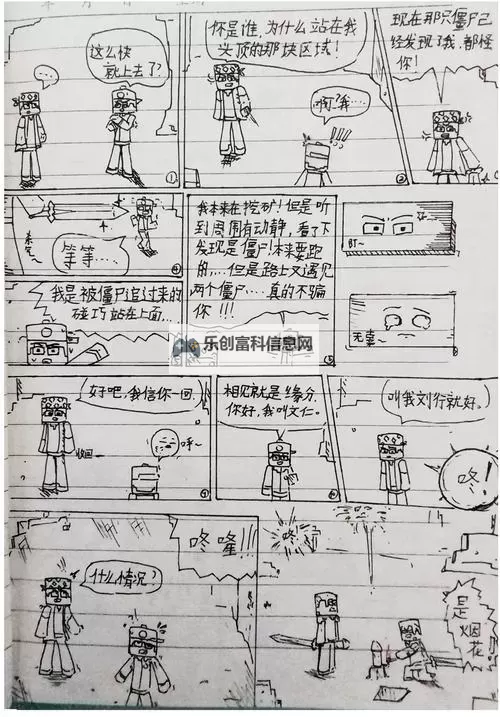 ...
这么快
就上去了?
①
你是谁,为什么站在我
头顶的那块区域!
啊?我...
!!!
②
现在那只僵尸已
经发现了我,都怪
你!
等等...
我是被僵尸追过来的
碰巧站在上面...
我本来在挖矿!但是听
到周围有动静,看了下
发现是僵尸!本来要跑
的,...但是路上又遇见
两个僵尸....真的不骗
你!!!
盯~
无辜~
乐创富科信息网
好吧,我信你一回.
收回~
呼~
相见就是缘分.
你好,我叫文仁。
叫我刘行就好.
咚!
什么情况?
咚嗶!!!
咚!
是烟花